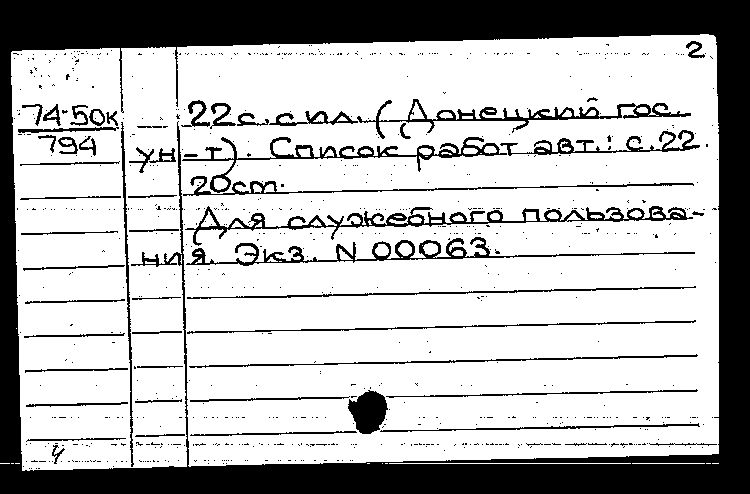 2
74-50к
794
22с. с ил. (Донецкий гос.
ун-т). Список работ авт.: с.22.
20см.
Для служебного пользова-
ния. Экз. N 00063.